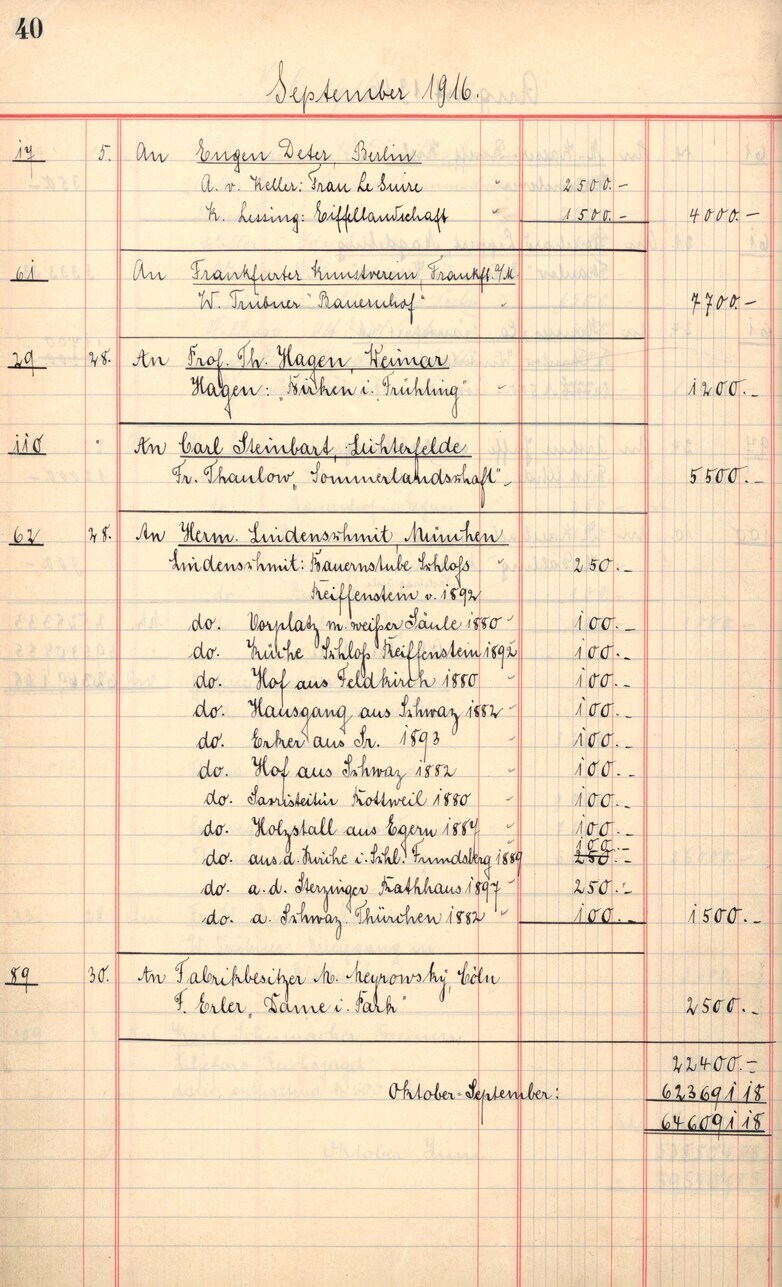 40
September 1916.
17 5. An Eugen Deter, Berlin
A. v. Keller: Frau Le Suire " 2500.-
K. Lessing: Eiffellandschaft " 1500.- 4000.-
61 An Frankfurter Kunstverein, Frankft. a/M
W. Trübner "Bauernhof" " 7700.-
29 28. An Prof. Th. Hagen, Weimar
Hagen: "Birken i. Frühling" " 1200.-
110 " An Carl Steinbart, Lichterfelde
Fr. Thaulow "Sommerlandschaft" " 5500.-
62 28. An Herm. Lindenschmit, München
Lindenschmit: Bauernstube Schloss " 250.-
Reiffenstein v. 1892
do. Vorplatz m. weißer Säule 1880 " 100.-
do. Küche Schloß Reiffenstein 1892 " 100.-
do. Hof aus Feldkirch 1880 " 100.-
do. Hausgang aus Schwaz 1882 " 100.-
do. Erker aus Sr. 1893 " 100.-
do. Hof aus Schwaz 1882 " 100.-
do. Rottweil 1880 " 100.-
do. Holzstall aus Egern 1887 " 100.-
100.-
do. aus d. Kirche i. Schl. Frundsberg 1889 250.-
do. a. d. Sterzinger Rathhaus 1897 " 250.-
do. a. Schwaz Thürchen 1882 " 100.- 1500.-
89 30. An Fabrikbesitzer M. Meyrowsky, Cöln
F. Erler "Dame i. Park" 2500.-
22400.-
Oktober-September: 623691 18
646091 18